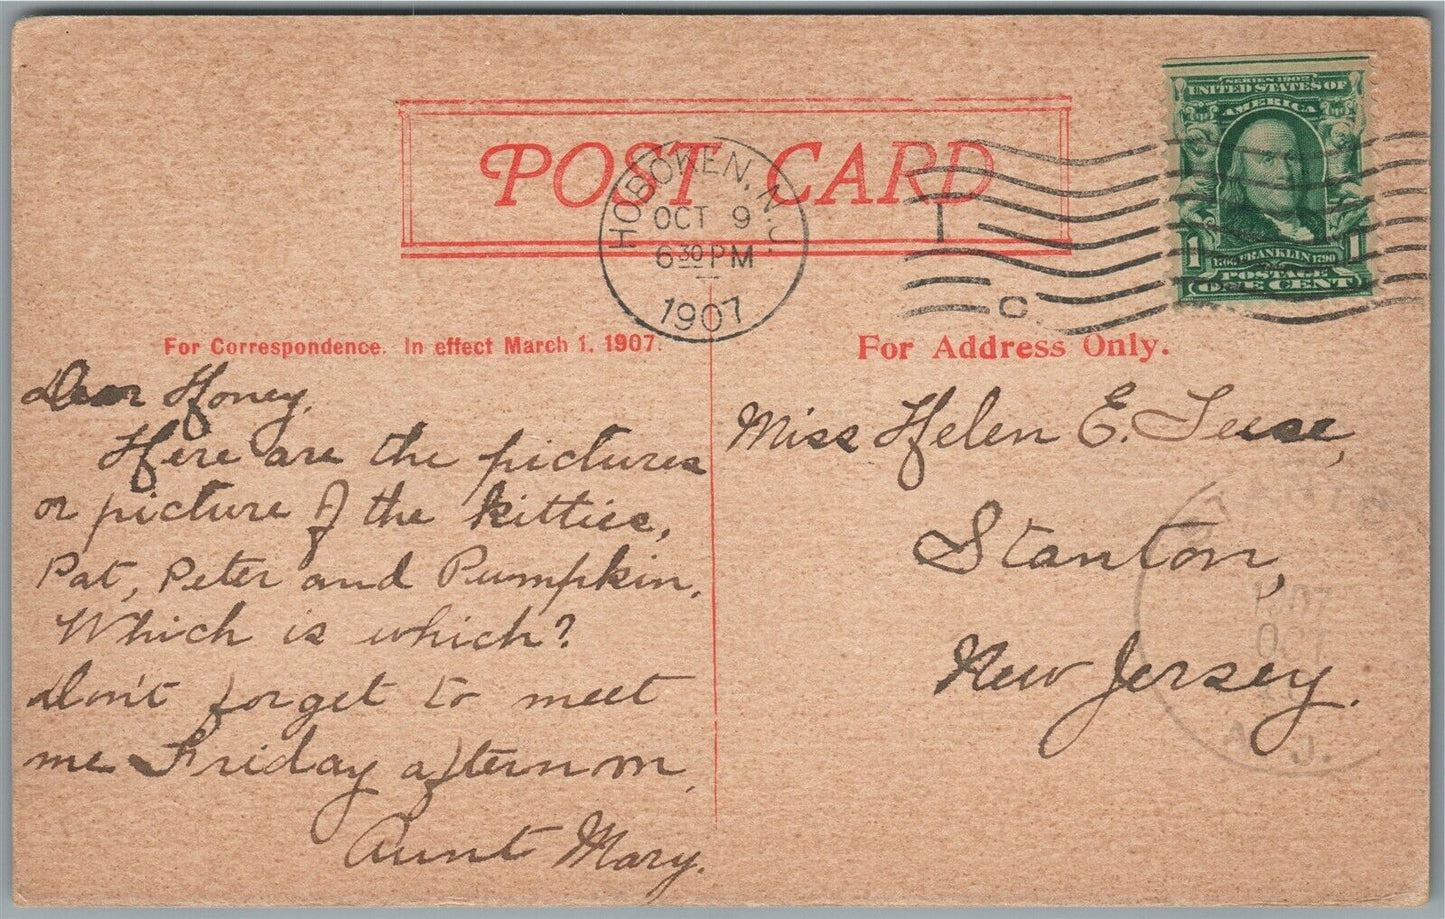 POST CARD
HOBOKEN, N.J.
OCT 9
6 30 PM
1907
C
SERIES 1902
UNITED STATES OF
AMERICA
1 1
1706 FRANKLIN 1790
POSTAGE
ONE CENT
For Correspondence. In effect March 1, 1907.
Dear Honey.
Here are the pictures
or picture of the kitties,
Pat, Peter and Pumpkin.
Which is which?
Don't forget to meet
me Friday afternoon.
Aunt Mary.
For Address Only.
Miss Helen E.
Stanton,
New Jersey.
OCT
N.J.